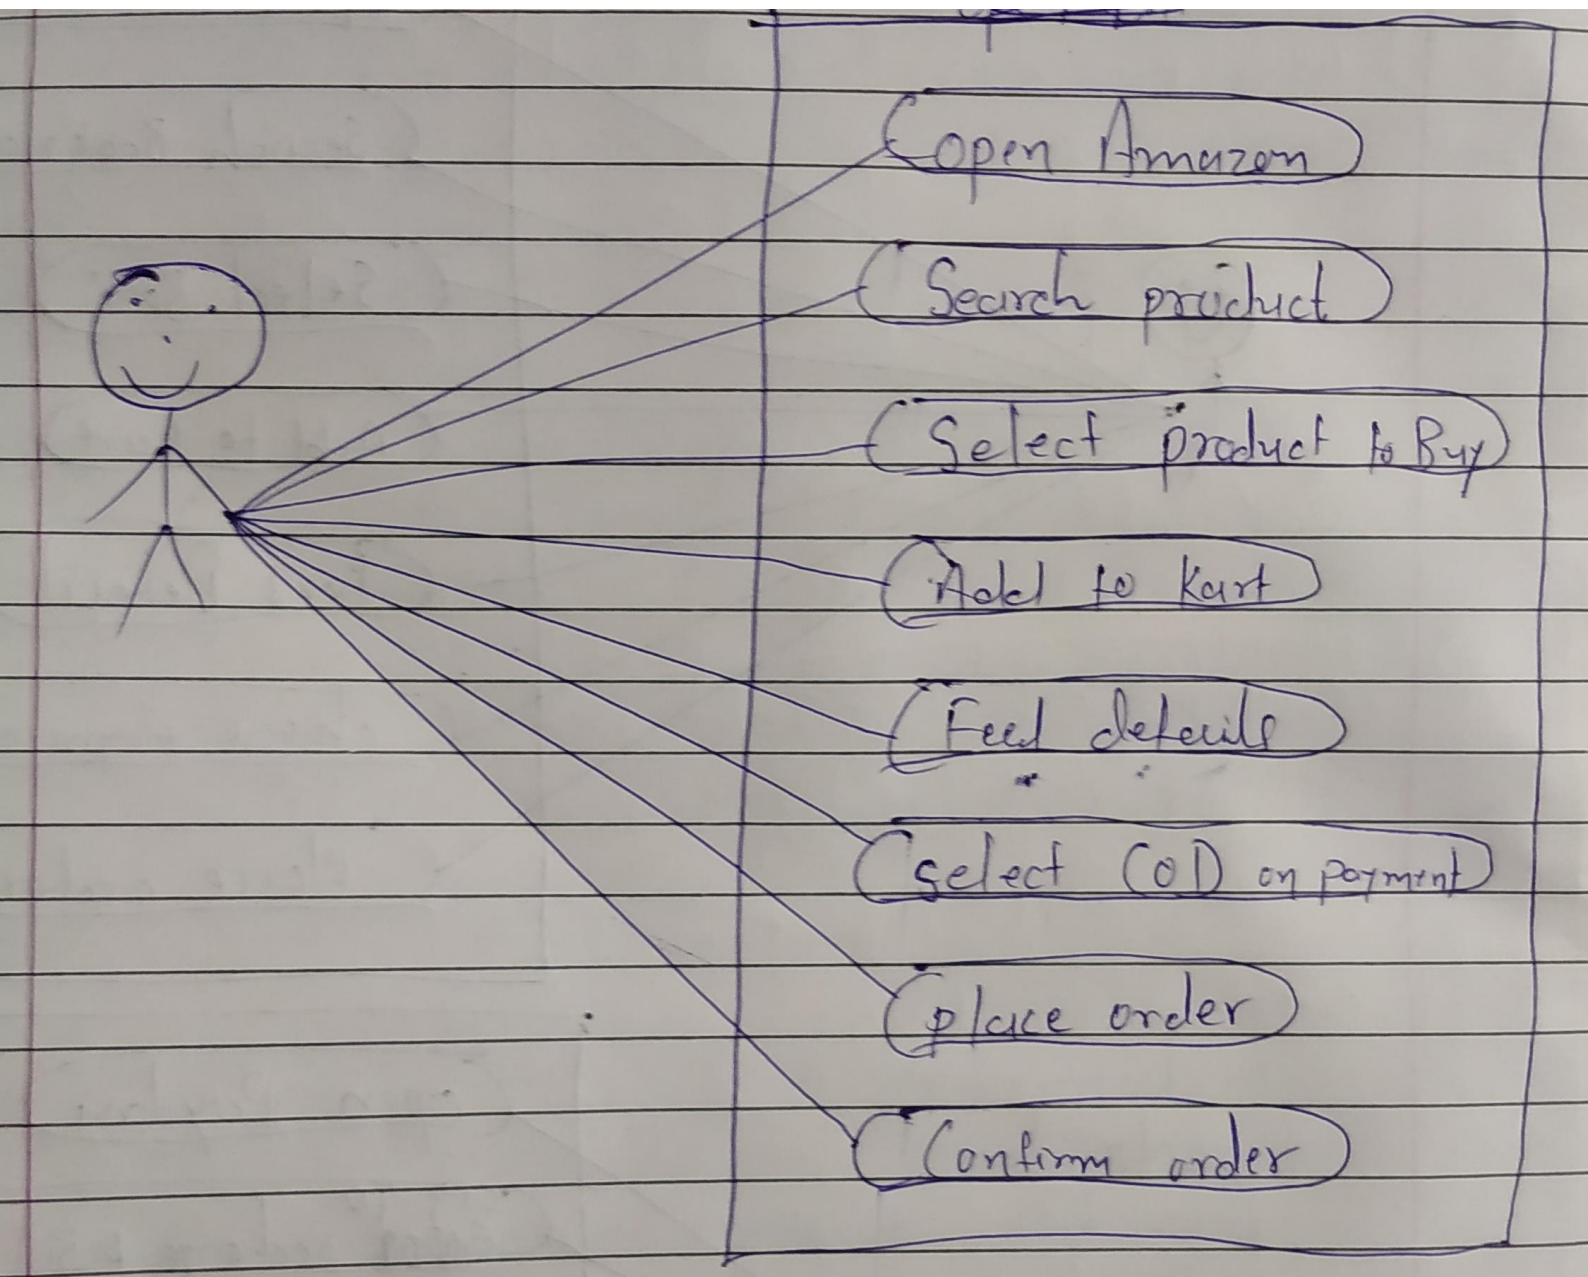 open Amazon
Search product
Select product to Buy
Add to Kart
Feed details
Select COD on payment
place order
Confirm order